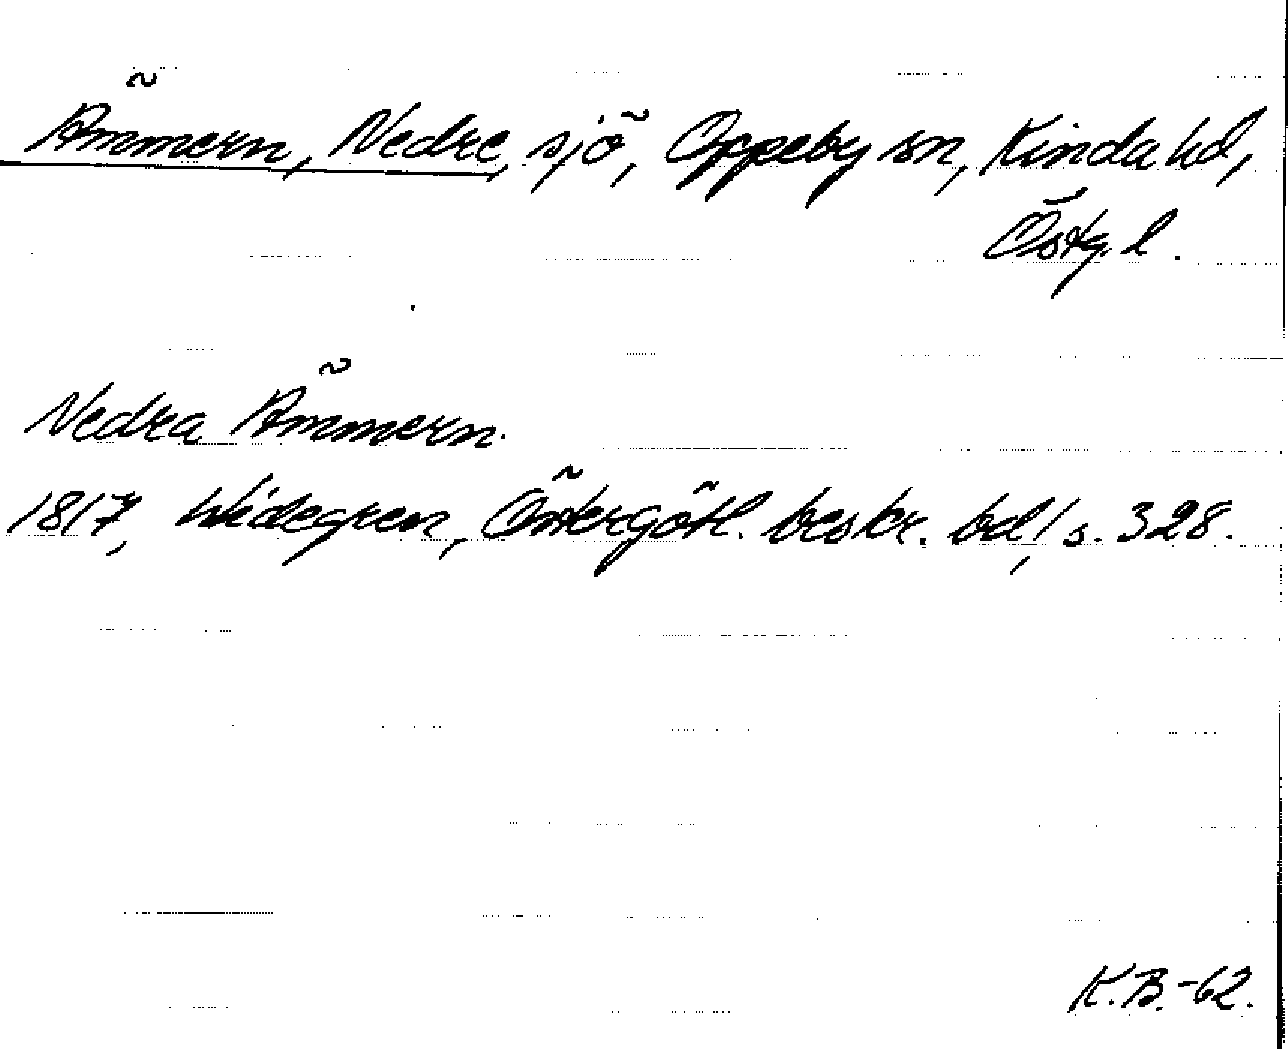 Ämmern, Nedre, sjö, Oppeby sn, Kinda hd,
Östg. l.
Nedra Ämmern.
1817, Widegren, Östergötl. beskr. bd 1, s. 328.
K.B.-62.